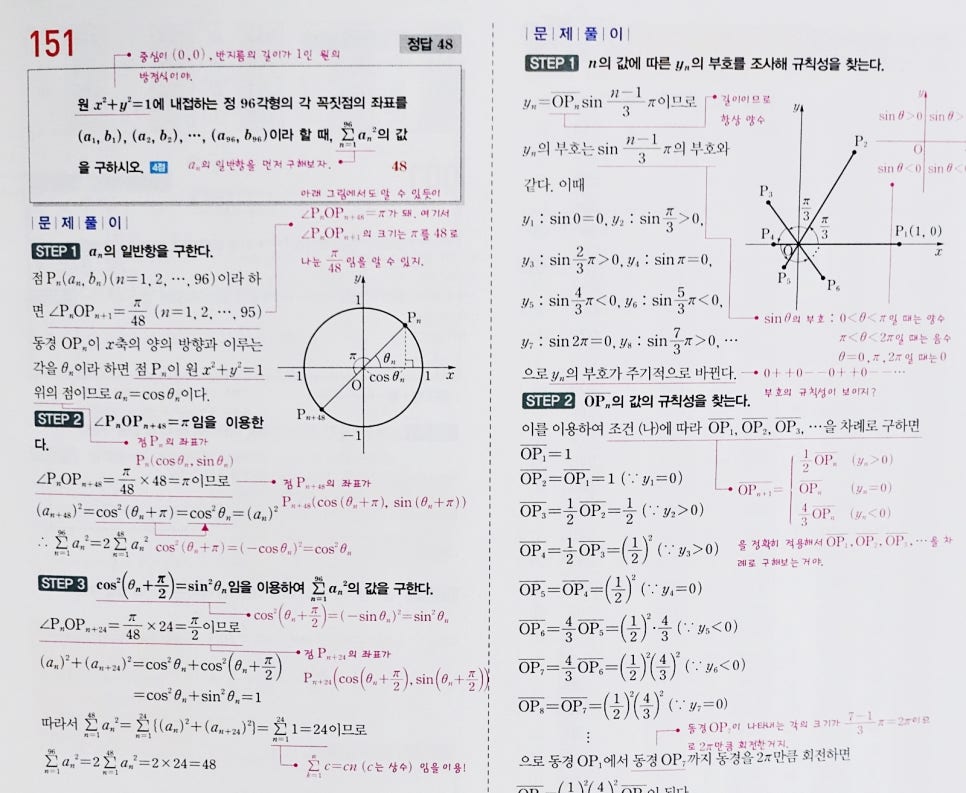 151
정답 48
중심이 (0, 0), 반지름의 길이가 1인 원의
방정식이야.
원 x²+y²=1에 내접하는 정 96각형의 각 꼭짓점의 좌표를
(a₁, b₁), (a₂, b₂), ⋯, (a₉₆, b₉₆)이라 할 때, \sum_{n=1}^{96} aₙ²의 값
을 구하시오. 4점
aₙ의 일반항을 먼저 구해보자.
48
|문|제|풀|이|
아래 그림에서도 알 수 있듯이
∠PₙOPₙ₊₄₈=π가 돼. 여기서
∠PₙOPₙ₊₁의 크기는 π를 48로
나눈 π/48 임을 알 수 있지.
STEP 1 aₙ의 일반항을 구한다.
점 Pₙ(aₙ, bₙ)(n=1, 2, ⋯, 96)이라 하
면 ∠PₙOPₙ₊₁=π/48 (n=1, 2, ⋯, 95)
동경 OPₙ이 x축의 양의 방향과 이루는
각을 θₙ이라 하면 점 Pₙ이 원 x²+y²=1
위의 점이므로 aₙ=cos θₙ이다.
y
1
Pₙ
π
θₙ
−1
O
cos θₙ
1
x
Pₙ₊₄₈
−1
STEP 2 ∠PₙOPₙ₊₄₈=π임을 이용한
다.
점 Pₙ의 좌표가
Pₙ(cos θₙ, sin θₙ)
∠PₙOPₙ₊₄₈=π/48×48=π이므로
점 Pₙ₊₄₈의 좌표가
Pₙ₊₄₈(cos (θₙ+π), sin (θₙ+π))
(aₙ₊₄₈)²=cos² (θₙ+π)=cos² θₙ=(aₙ)²
∴ \sum_{n=1}^{96} aₙ²=2\sum_{n=1}^{48} aₙ²
cos² (θₙ+π)=(−cos θₙ)²=cos² θₙ
STEP 3 cos²(θₙ+π/2)=sin² θₙ임을 이용하여 \sum_{n=1}^{96} aₙ²의 값을 구한다.
cos²(θₙ+π/2)=(−sin θₙ)²=sin² θₙ
∠PₙOPₙ₊₂₄=π/48×24=π/2이므로
점 Pₙ₊₂₄의 좌표가
Pₙ₊₂₄(cos(θₙ+π/2), sin(θₙ+π/2))
(aₙ)²+(aₙ₊₂₄)²=cos² θₙ+cos²(θₙ+π/2)
=cos² θₙ+sin² θₙ=1
따라서 \sum_{n=1}^{48} aₙ²=\sum_{n=1}^{24} {(aₙ)²+(aₙ₊₂₄)²}=\sum_{n=1}^{24} 1=24이므로
\sum_{n=1}^{96} aₙ²=2\sum_{n=1}^{48} aₙ²=2×24=48
\sum_{k=1}^{n} c=cn (c는 상수) 임을 이용!
|문|제|풀|이|
STEP 1 n의 값에 따른 yₙ의 부호를 조사해 규칙성을 찾는다.
yₙ=\overline{OPₙ} sin (n−1)/3 π이므로
길이이므로
항상 양수
yₙ의 부호는 sin (n−1)/3 π의 부호와
같다. 이때
y₁ : sin 0=0, y₂ : sin π/3>0,
y₃ : sin 2/3 π>0, y₄ : sin π=0,
y₅ : sin 4/3 π<0, y₆ : sin 5/3 π<0,
y₇ : sin 2π=0, y₈ : sin 7/3 π>0, ⋯
으로 yₙ의 부호가 주기적으로 바뀐다.
y
P₂
P₃
π/3
π/3
P₄
O
P₁(1, 0)
x
P₅
P₆
y
sin θ>0
sin θ>
O
sin θ<0
sin θ<
sin θ의 부호 : 0<θ<π일 때는 양수
π<θ<2π일 때는 음수
θ=0, π, 2π일 때는 0
0++0−−0++0−− ⋯
부호의 규칙성이 보이지?
STEP 2 \overline{OPₙ}의 값의 규칙성을 찾는다.
이를 이용하여 조건 (나)에 따라 \overline{OP₁}, \overline{OP₂}, \overline{OP₃}, ⋯을 차례로 구하면
\overline{OP₁}=1
\overline{OP₂}=\overline{OP₁}=1 (∵ y₁=0)
\overline{OP₃}=1/2 \overline{OP₂}=1/2 (∵ y₂>0)
\overline{OPₙ₊₁}=
1/2 \overline{OPₙ} (yₙ>0)
\overline{OPₙ} (yₙ=0)
4/3 \overline{OPₙ} (yₙ<0)
\overline{OP₄}=1/2 \overline{OP₃}=(1/2)² (∵ y₃>0)
을 정확히 적용해서 \overline{OP₁}, \overline{OP₂}, \overline{OP₃}, ⋯을 차
례로 구해보는 거야.
\overline{OP₅}=\overline{OP₄}=(1/2)² (∵ y₄=0)
\overline{OP₆}=4/3 \overline{OP₅}=(1/2)²·4/3 (∵ y₅<0)
\overline{OP₇}=4/3 \overline{OP₆}=(1/2)²(4/3)² (∵ y₆<0)
\overline{OP₈}=\overline{OP₇}=(1/2)²(4/3)² (∵ y₇=0)
⋮
동경 OP₇이 나타내는 각의 크기가 (7−1)/3 π=2π이므
로 2π만큼 회전한거지.
으로 동경 OP₁에서 동경 OP₇까지 동경을 2π만큼 회전하면